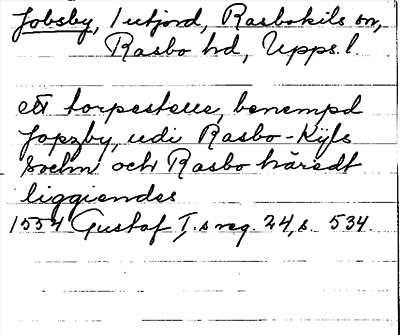 Jobsby, 1 utjord, Rasbokils sn,
Rasbo hd, Upps. l.
ett torpestelle, benempd
Jopzby, udi Rasbo-Kijls
sochn och Rasbo häredt
liggiendes
1554 Gustaf I.s reg. 24, s. 534.